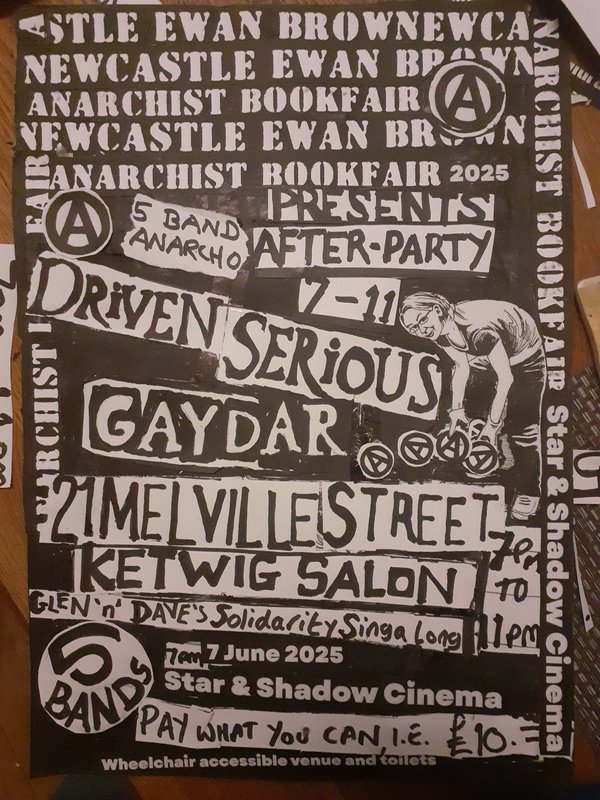 ASTLE EWAN BROWNEWCA
NEWCASTLE EWAN BROWN
ANARCHIST BOOKFAIR
NEWCASTLE EWAN BROWN
ANARCHIST BOOKFAIR 2025
PRESENTS
5 BAND
ANARCHO
AFTER-PARTY
7-11
DRiVEN
SERiOUS
GAYDAR
21 MELVILLE STREET
KETWIG SALON
7pm
TO
11pm
GLEN 'n' DAVE'S Solidarity Singa Long
5
BANDS
7am 7 June 2025
Star & Shadow Cinema
PAY WHAT YOU CAN, I.E. £10.=
Wheelchair accessible venue and toilets
NARCHIST BOOKFAIR Star & Shadow Cinema
ARCHIST
FAIR